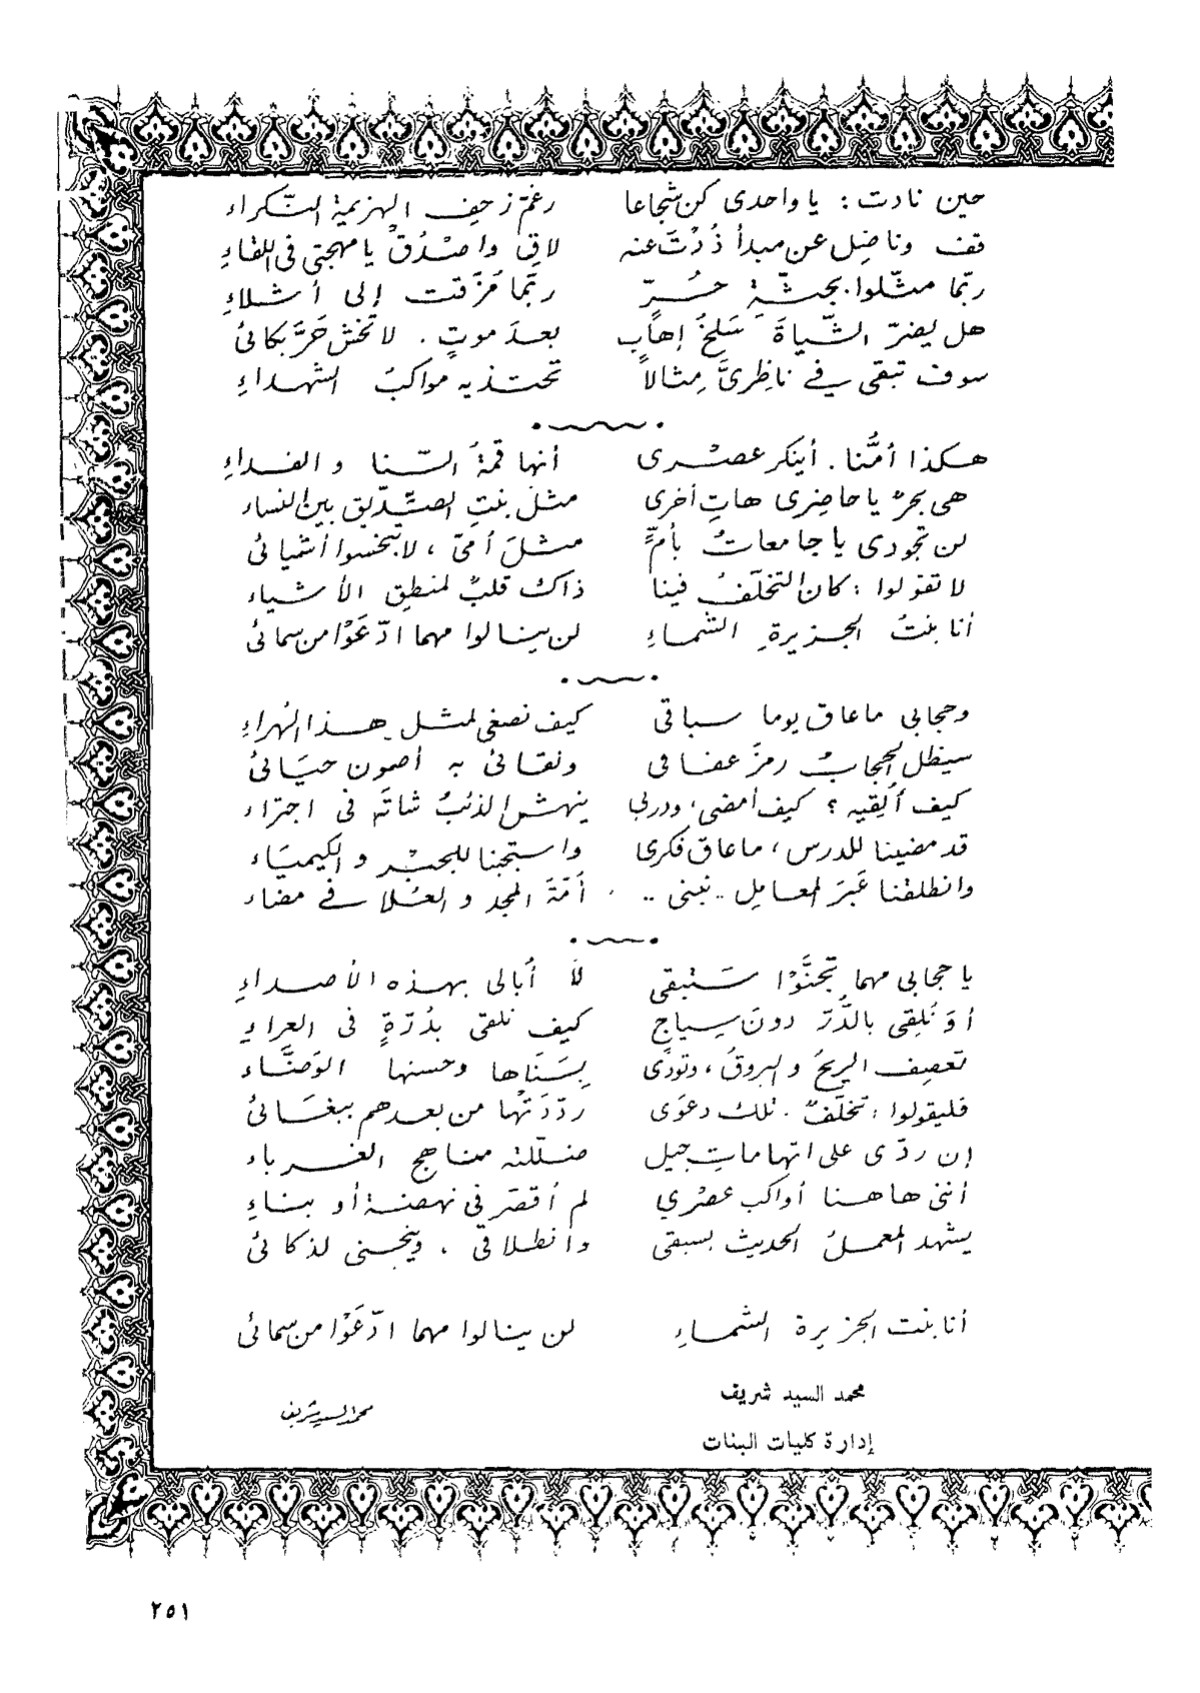 حين نادت : يا واحدى كن شجاعا رغم زحف الهزيمة النكراء
قف وناضِل عن مبدأ ذُدْتَ عنه لاقِ واصْدُقْ يا مهجتى فى اللقاءِ
ربّما مثّلوا بجثّةِ حُرٍّ ربّما مَزَّقت إلى أشلاءِ
هل يضرّ الشّياةَ سَلخُ إهابٍ بعدَ موتٍ . لا تخش حَرَّ بكائى
سوف تبقى في ناظِرىَّ مِثالاً تحتذيه مواكبُ الشهداءِ
هكذا أمُّنا . أينكر عصْرى أنها قمةُ السّنا و الفداءِ
هى بحرٌ يا حاضِرى هاتِ أخرى مثلَ بنتِ الصّدّيق بين النساء
لن تجودى يا جامعاتُ بأمٍّ مثلَ أمىّ ، لا تبخسوا أشيائى
لا تقولوا : كان التخلّفُ فينا ذاك قلبٌ لمنطقِ الأشياء
أنا بنتُ الجزيرةِ الشماءِ لن ينالوا مهما ادّعَوْا من سمائى
وحجابى ما عاق يوما سباقى كيف نصغى لمثل هذا الهُراءِ
سيظل الحجابُ رمزَ عفافى ونقائى به أصون حيَائى
كيف ألقيه ؟ كيف أمضى، ودربى ينهش الذئبُ شاتَه فى اجتراء
قد مضينا للدرس ، ما عاق فكرى واستجبنا للجبْر و الكيميَاء
وانطلقنا عَبرَ المعامِلِ .. نبنى .. أمّةَ المجد و العُلا في مضاء
يا حجابى مهما تجنَّوْا سَتبقى لا أُبالى بهذه الأصداءِ
أوَ نُلقِى بالدُّرّ دونَ سياجٍ كيف نلقى بدُرّةٍ فى العراءِ
تعصِف الريحُ و البروقُ ، وتودى بِسَنَاها وحسنها الوَضّاء
فليقولوا : تخلّفٌ . تلك دعوَى ردّدَتْها من بعدهم ببغَائى
إن ردّى على اتهاماتِ جيل ضلّلته مناهج الغرباء
أننى هاهنا أواكب عصْري لم أقصّر فى نهضة أو بناءِ
يشهد المعملُ الحديث بسبقى وانطلاقى ، وينحنى لذكائى
أنا بنت الجزيرة الشماءِ لن ينالوا مهما ادّعَوْا من سمائى
محمد السيد شريف
محمد السيد شريف
إدارة كليات البنات
٢٥١